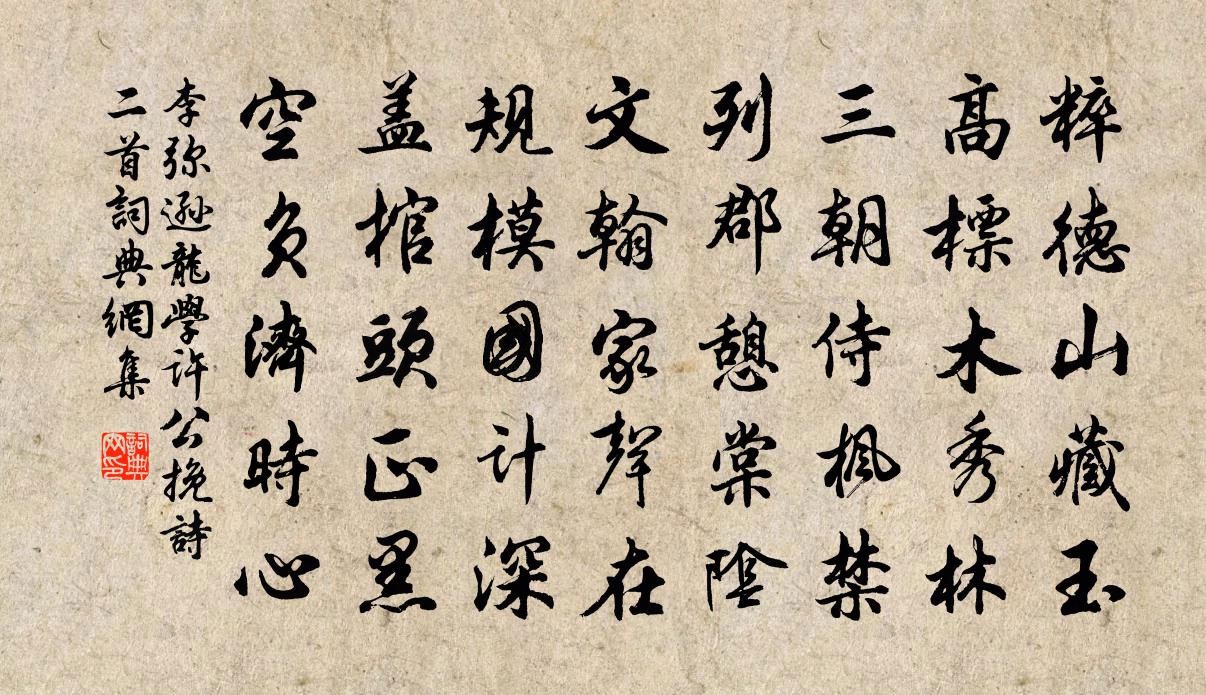 粹德山藏玉
高標木秀林
三朝侍楓禁
列郡憩棠陰
文翰家聲在
規模國計深
盖棺頭正黑
空負濟時心
李彌遜龍學許公挽詩
二首詞典網集
詞典
网印